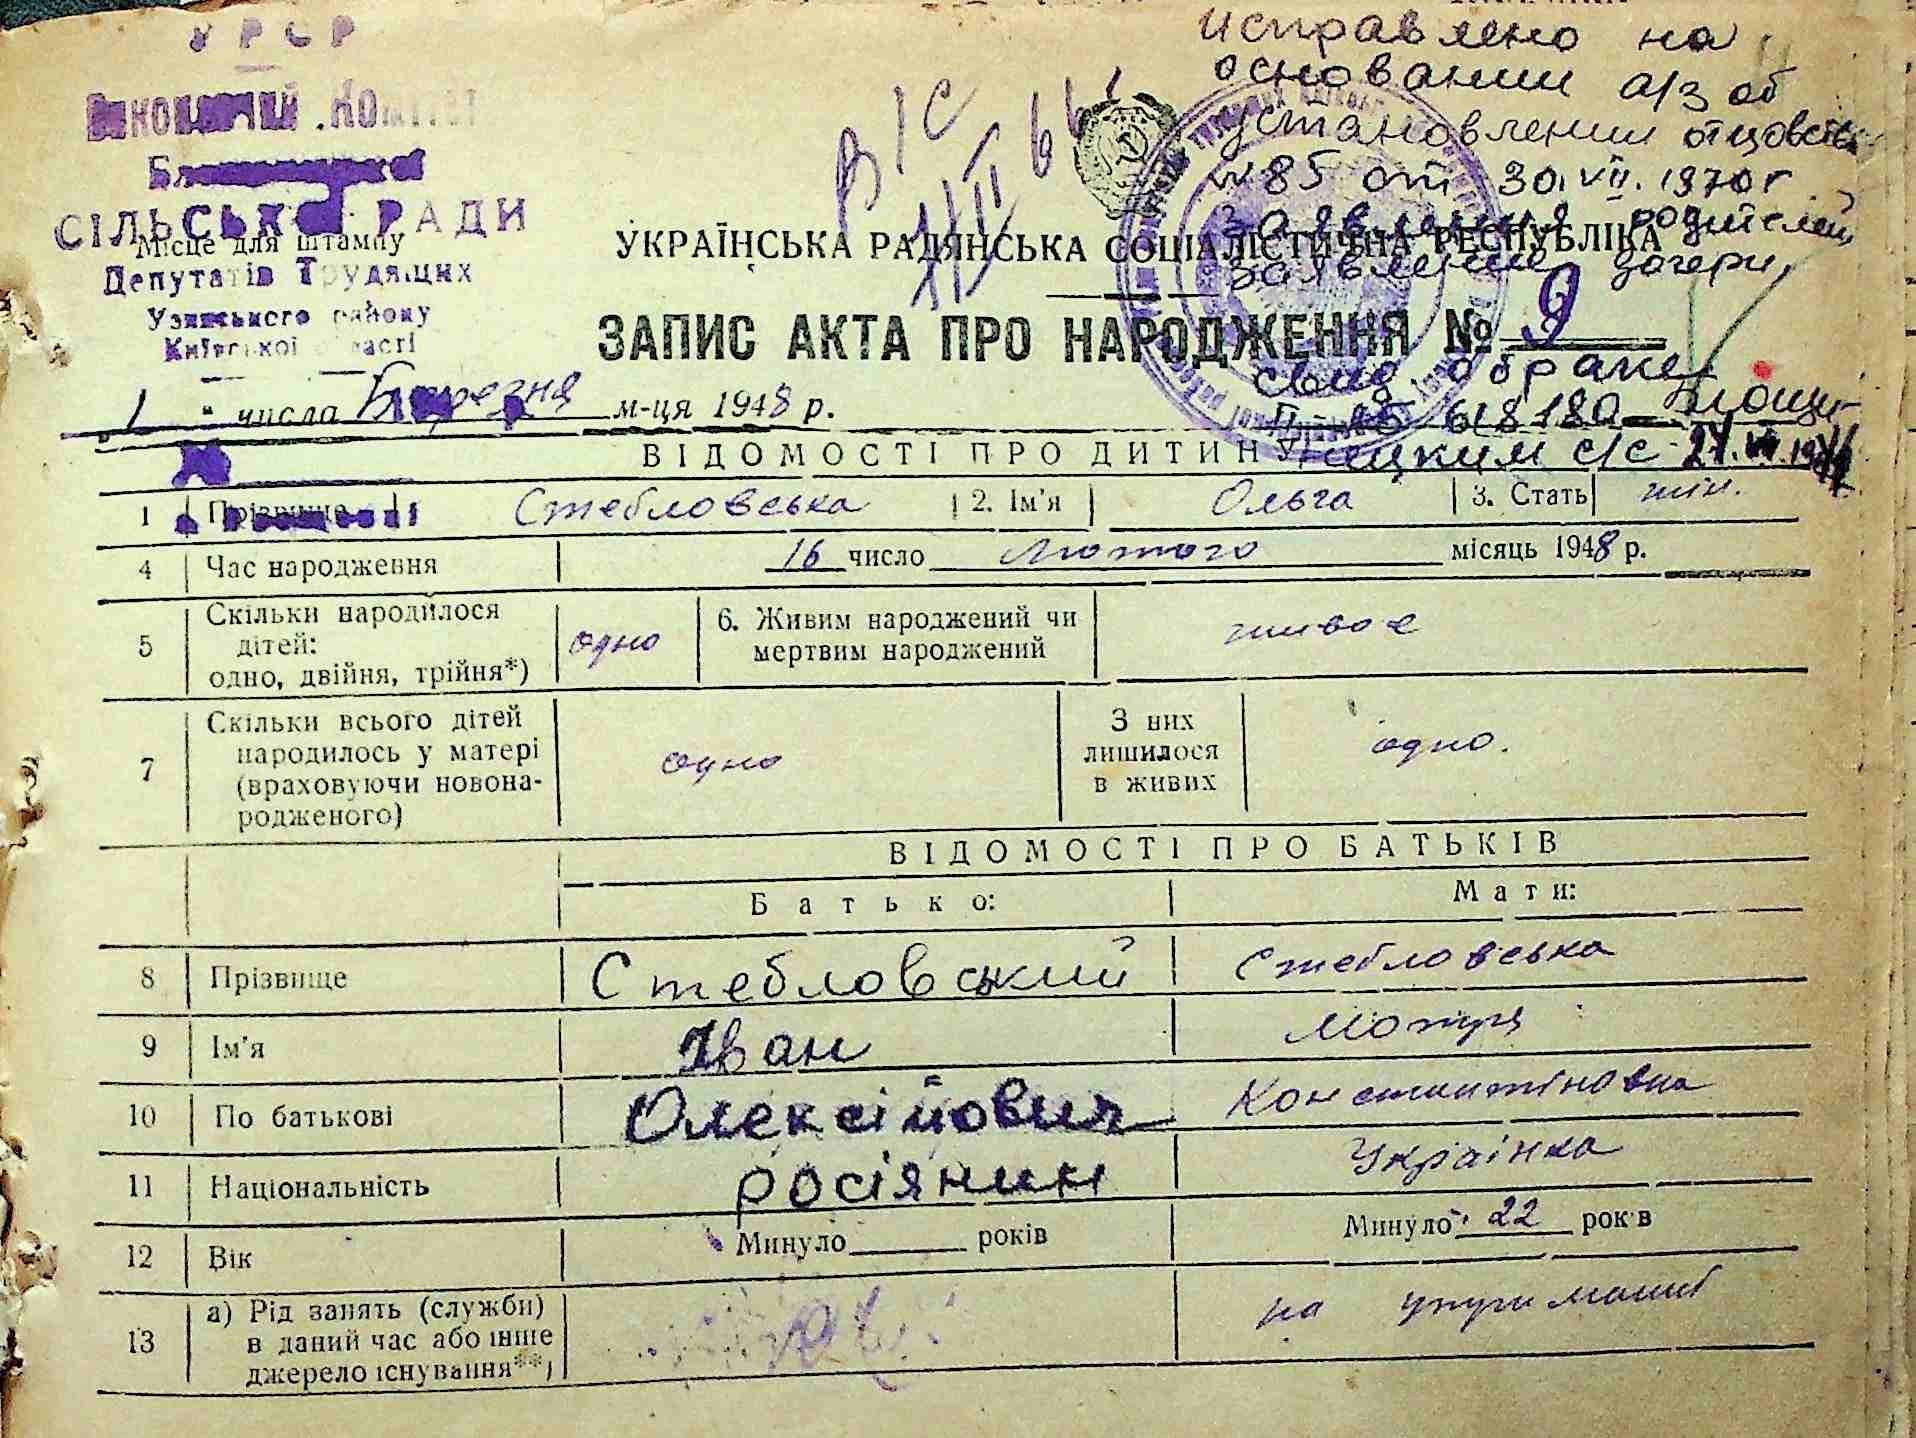 УРСР
исправлено на
основании а/з об
установлении отцовства
№85 от 30.VII.1970г
заявления родителей
заявления дочери
свид. о браке
618180
ецким с/с
СІЛЬСЬКОЇ РАДИ
Місце для штампу
Депутатів Трудящих
Узинського району
Київської області
УКРАЇНСЬКА РАДЯНСЬКА СОЦІАЛІСТИЧНА РЕСПУБЛІКА
ЗАПИС АКТА ПРО НАРОДЖЕННЯ № 9
1 " числа Березня м-ця 1948 р.
ВІДОМОСТІ ПРО ДИТИНУ
1 Прізвище Стебловська 2. Ім'я Ольга 3. Стать жін.
4 Час народження 16 число Лютого місяць 1948 р.
5 Скільки народилося дітей: одно, двійня, трійня*) одно 6. Живим народжений чи мертвим народжений живое
7 Скільки всього дітей народилось у матері (враховуючи новонародженого) одно З них лишилося в живих одно.
ВІДОМОСТІ ПРО БАТЬКІВ
Батько: Мати:
8 Прізвище Стебловський Стебловська
9 Ім'я Іван Мотря
10 По батькові Олексійович Константіновна
11 Національність росіянин Українка
12 Вік Минуло років Минуло 22 років
13 а) Рід занять (служби) в даний час або інше джерело існування**) на